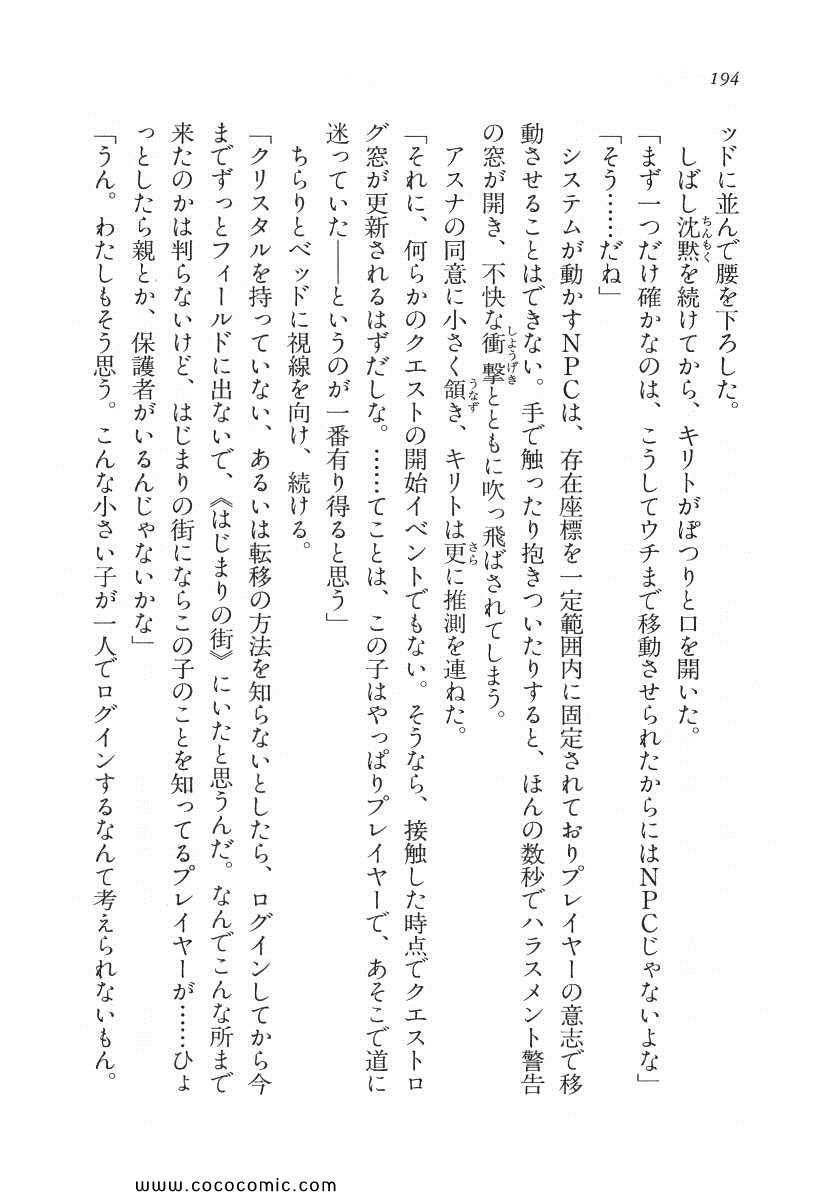 194
ッドに並んで腰を下ろした。
しばし沈黙を続けてから、キリトがぽつりと口を開いた。
「まず一つだけ確かなのは、こうしてウチまで移動させられたからにはＮＰＣじゃないよな」
「そう……だね」
システムが動かすＮＰＣは、存在座標を一定範囲内に固定されておりプレイヤーの意志で移
動させることはできない。手で触ったり抱きついたりすると、ほんの数秒でハラスメント警告
の窓が開き、不快な衝撃とともに吹っ飛ばされてしまう。
アスナの同意に小さく頷き、キリトは更に推測を連ねた。
「それに、何らかのクエストの開始イベントでもない。そうなら、接触した時点でクエストロ
グ窓が更新されるはずだしな。……てことは、この子はやっぱりプレイヤーで、あそこで道に
迷っていた――というのが一番有り得ると思う」
ちらりとベッドに視線を向け、続ける。
「クリスタルを持っていない、あるいは転移の方法を知らないとしたら、ログインしてから今
までずっとフィールドに出ないで、《はじまりの街》にいたと思うんだ。なんでこんな所まで
来たのかは判らないけど、はじまりの街にならこの子のことを知ってるプレイヤーが……ひょ
っとしたら親とか、保護者がいるんじゃないかな」
「うん。わたしもそう思う。こんな小さい子が一人でログインするなんて考えられないもん。
www.cococomic.com